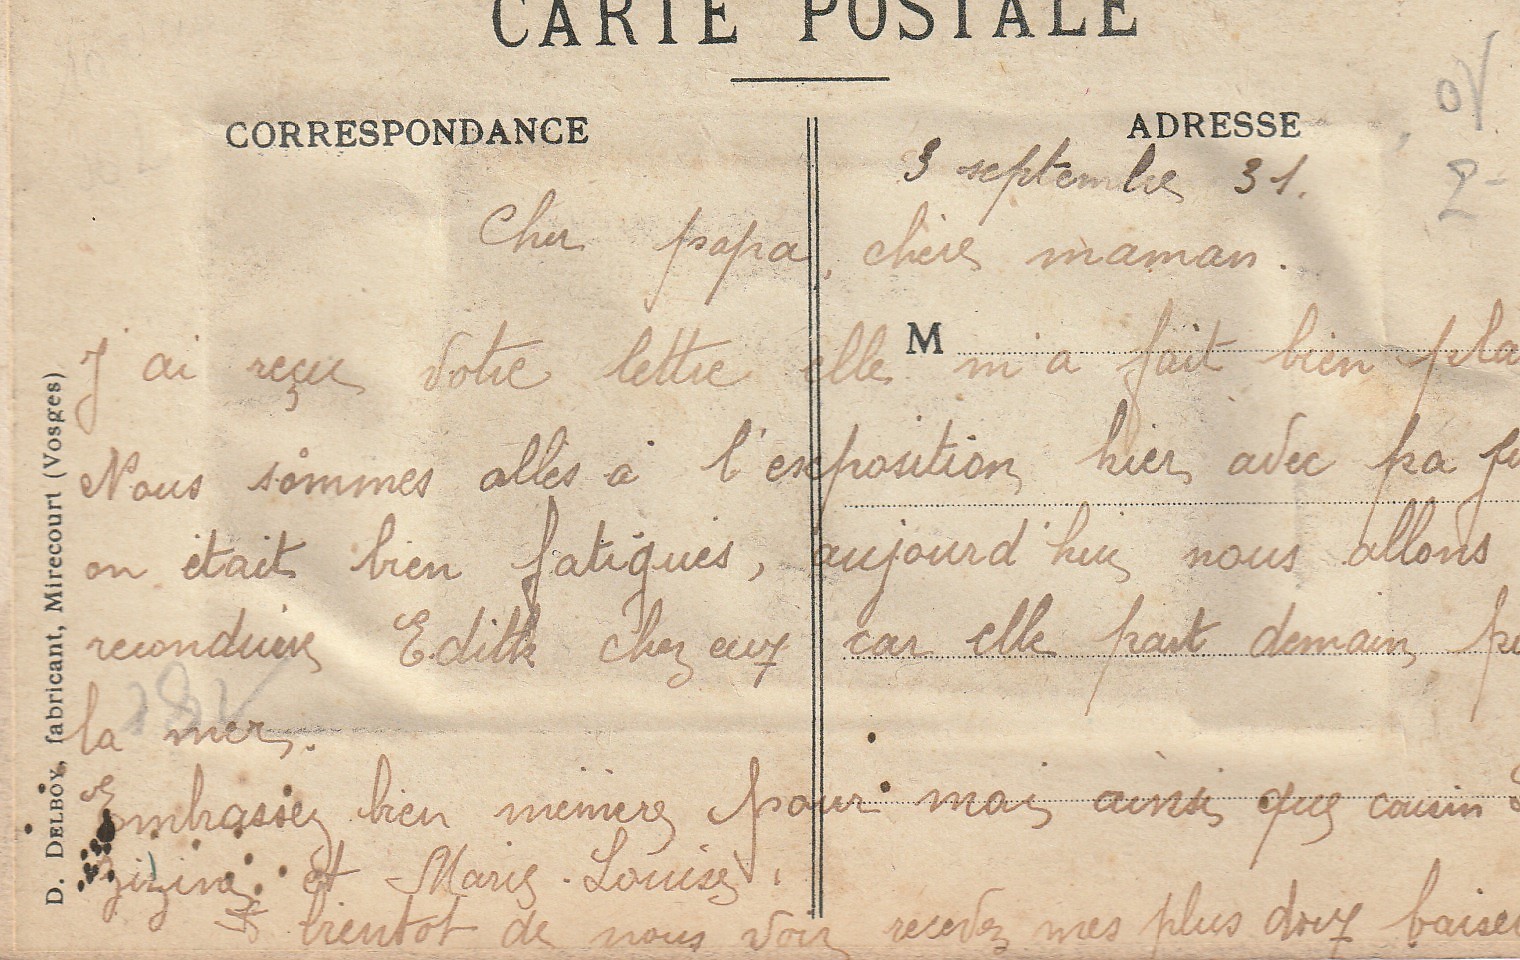 CARTE POSTALE
CORRESPONDANCE
ADRESSE
3 septembre 31.
Cher papa, chère maman.
M
J'ai reçue votre lettre elle m'a fait bien pla
Nous sommes allés à l'exposition hier avec pa
on était bien fatigués, aujourd'hui nous allons
reconduire Edith chez eux car elle part demain
la mer.
embrassez bien mémère pour moi ainsi que cousin
Zizine et Marie-Louise,
bientot de nous voir recevez mes plus doux baiser
D. DELBOY, fabricant, Mirecourt (Vosges)